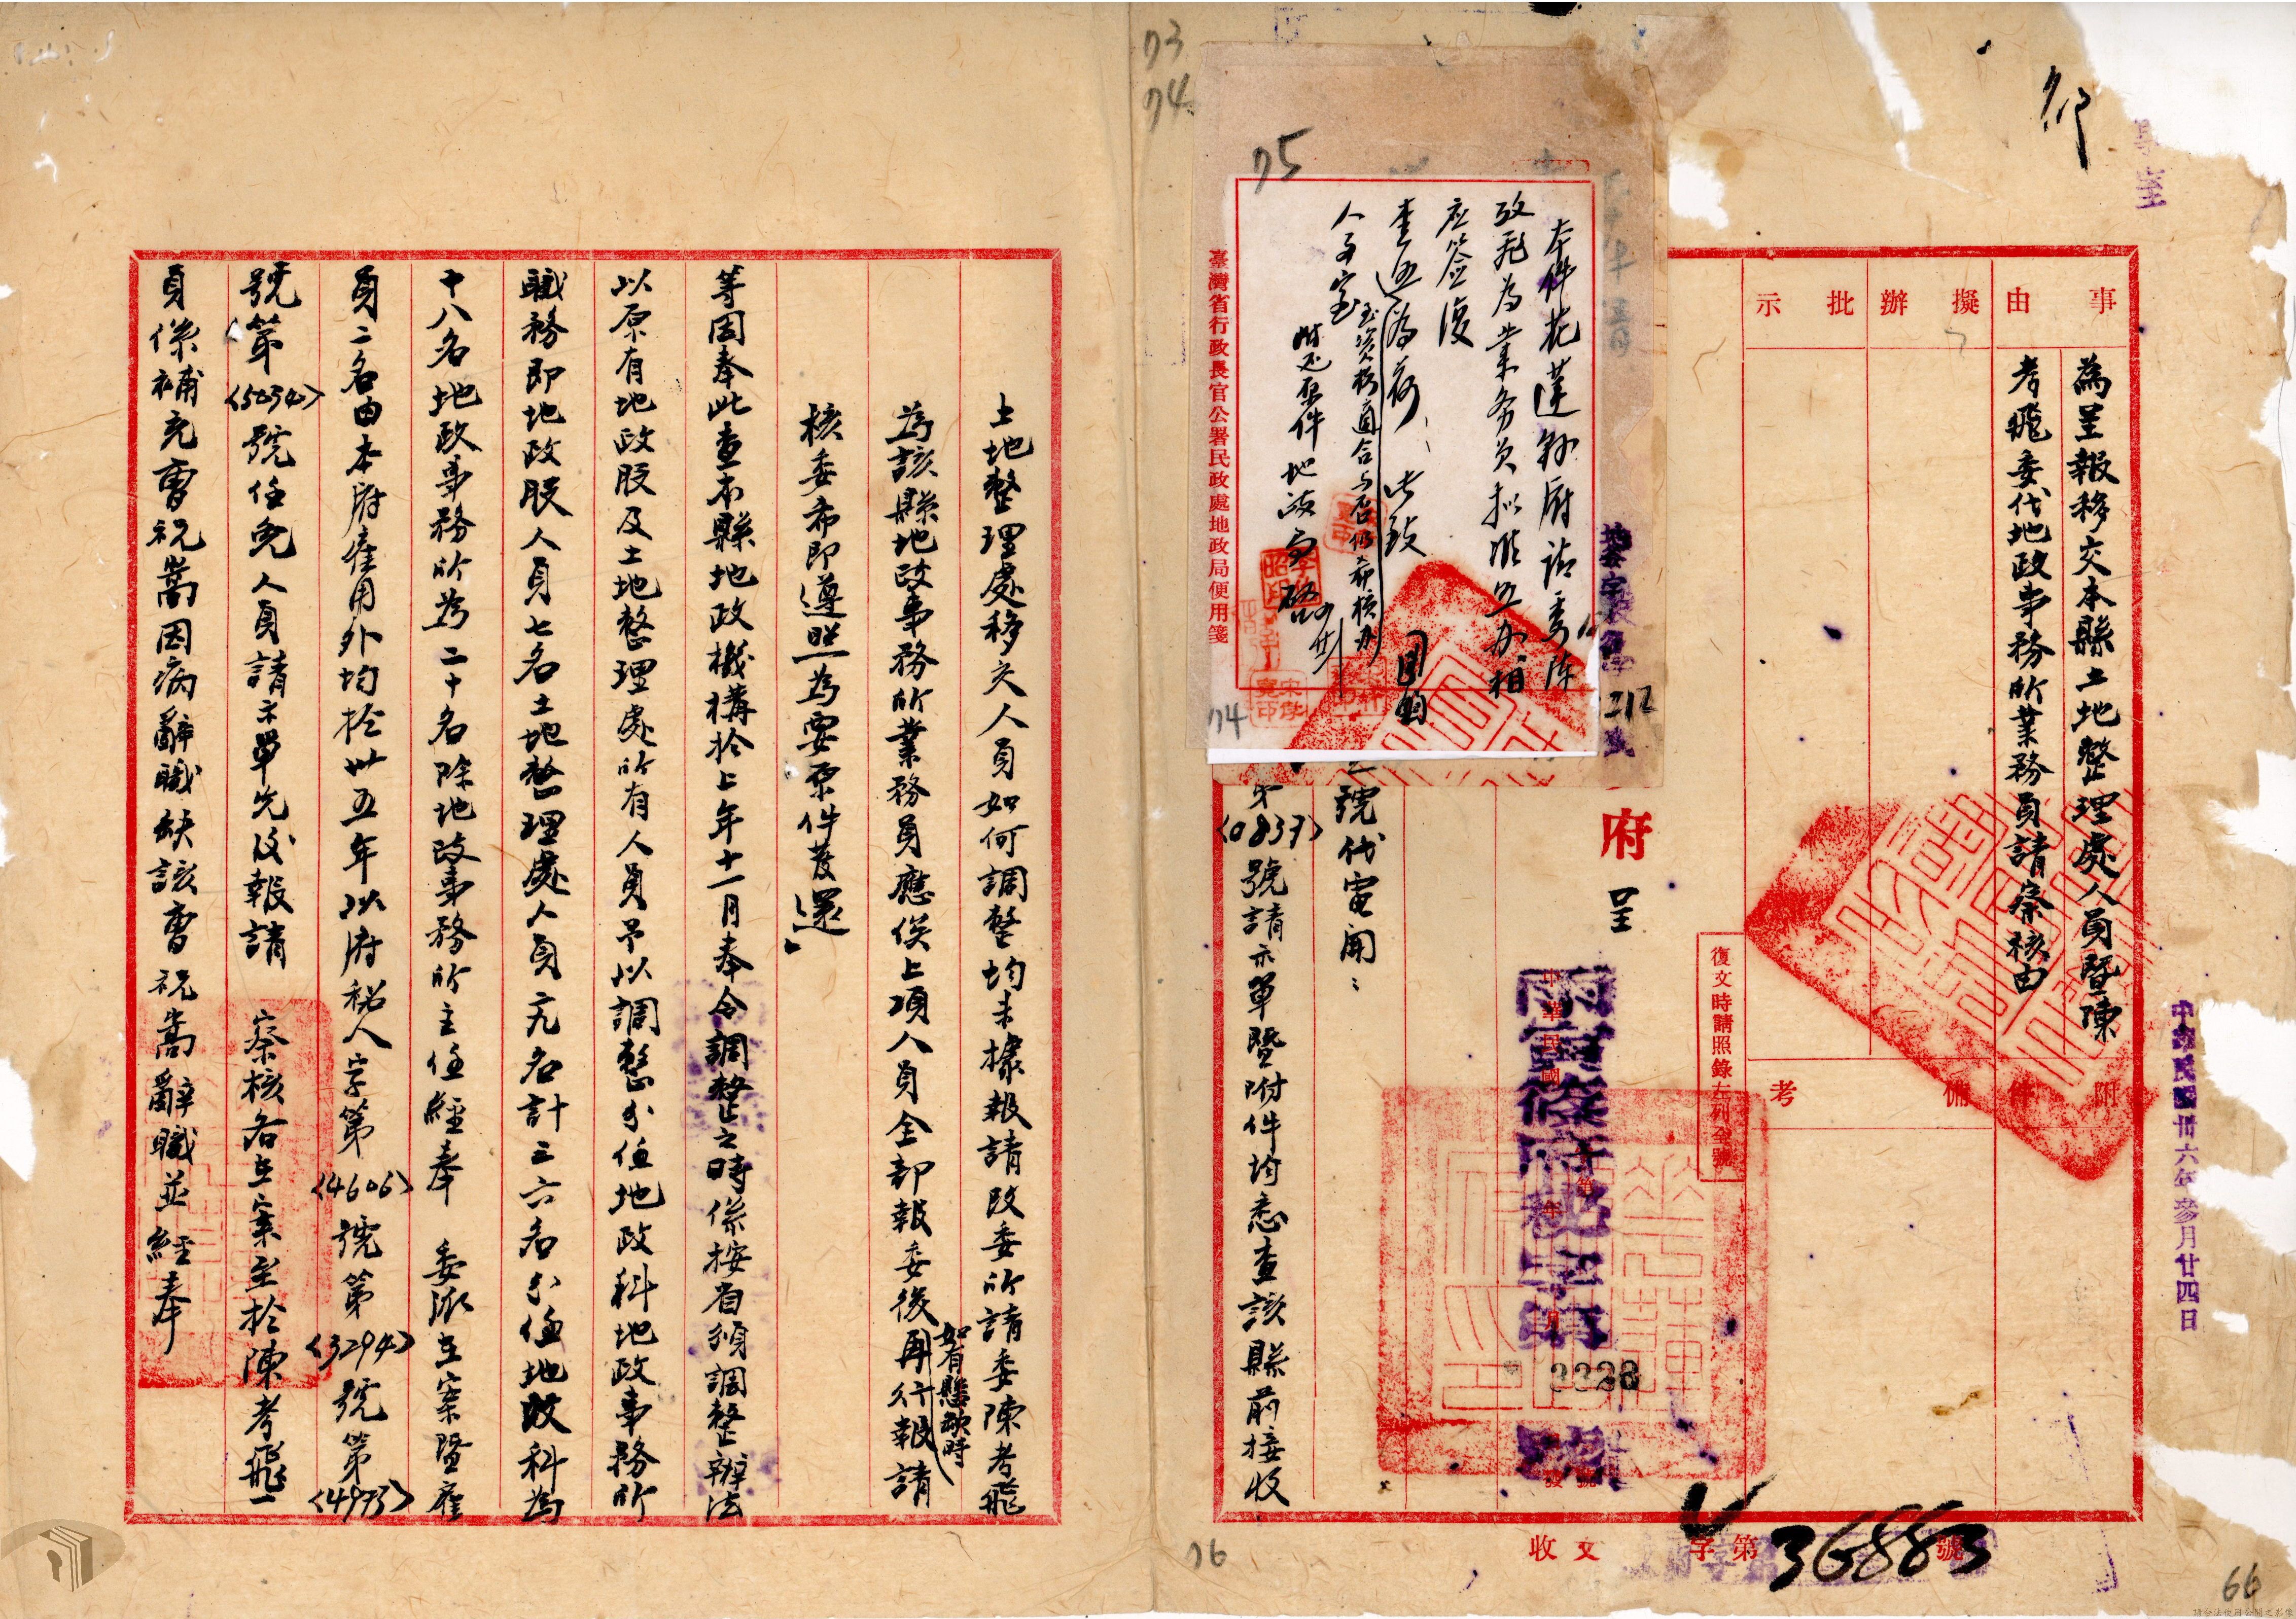 73
74
75
事由
擬辦
批示
附件
備考
為呈報移交本縣土地整理處人員暨陳
考飛委代地政事務所業務員請察核由
中華民國卅六年叁月廿四日
復文時請照錄左列全號
府 呈
中華民國 年 月
字第
3328
號
發
收文 字第 號
36883
本件花蓮縣府請委陳
考飛為業务員拟准照办相
应簽復
查照為荷 此致
人事室
至資格適合与否仍希核办
附还原件 地政局啟
臺灣省行政長官公署民政處地政局便用箋
212
74
號代電開：
第〈0837〉號請示單暨附件均悉查該縣前接收
土地整理處移交人員如何調整均未據報請改委所請委陳考飛
為該縣地政事務所業務員應俟上項人員全部報委後再行報請
如有懸缺時
核委希即遵照為要原件發還」
等因奉此查本縣地政機構於上年十一月奉令調整之時係按省頒調整辦法
以原有地政股及土地整理處所有人員予以調整分任地政科地政事務所
職務即地政股人員七名土地整理處人員元名計三六名分任地政科為
十八名地政事務所為二十名除地政事務所主任經奉 委派在案暨雇
員二名由本府雇用外均於卅五年以府秘人字第〈4606〉號第〈3294〉號第〈4973〉
號第〈5034〉號任免人員請示單先後報請 察核各在案至於陳考飛一
員係補充曹祝嵩因病辭職缺該曹祝嵩辭職並經奉
76
66